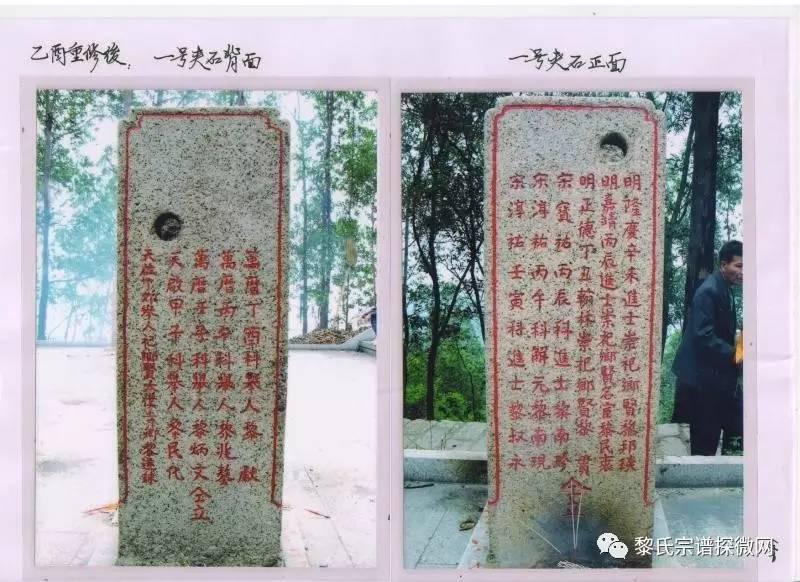 乙酉重修後，一号夹石背面
一号夹石正面
萬曆丁酉科舉人黎獻
萬曆丙午科舉人黎兆
萬曆壬午科舉人黎炳文仝立
天啟甲子科舉人黎民化
明隆慶辛未進士崇祀鄉賢黎邦琰
明嘉靖丙辰進士崇祀鄉賢名宦黎民衷
明正德丁丑翰林崇祀鄉賢黎貫仝
宋寶祐丙辰科進士黎南
宋淳祐丙午科解元黎南
宋淳祐壬寅科進士黎叔
黎氏宗谱探微网